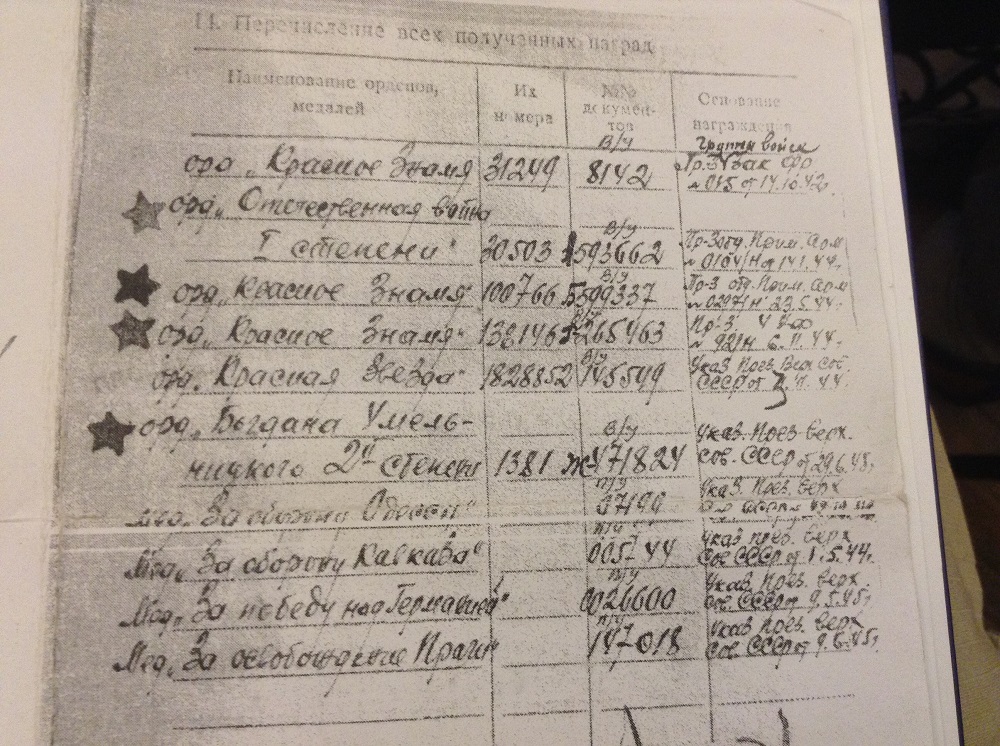 11. Перечисление всех полученных наград
Наименование орденов, Их №№ Основание
медалей номера докумен- награждения
тов
В/у Группы войск
орд „Красное Знамя 31249 8142 Пр-З Зак фр
№ 015 от 17.10.42
орд„ Отечественная война
В/у
I степени" 30503 593662 Пр-З отд. Прим. Арм
№ 0104/н от 14.1.44.
В/у
орд „Красное Знамя" 100766 599337 Пр-З отд. Прим. Арм
№ 0297/н 23.5.44.
орд „Красное Знамя" 265463 Пр-З 4
№ 92/н 6.11.44.
В/у
орд „Красная Звезда" 1828852 745549 Указ. През. Верх Сов.
СССР от 3.11.44.
орд„ Богдана Хмель- В/у Указ. През. Верх.
ницкого 2й степени 1381 Ж-471824 Сов. СССР от 29.6.45г
п/у Указ. През. Верх
Мед„ За оборону Одессы" 07199
п/у Указ През. Верх
Мед„ За оборону Кавказа" 005744 Сов СССР от 1.5.44г.
п/у Указ. През. Верх.
Мед „За победу над Германией" 0026600 Сов. СССР от 9.5.45г
п/у Указ. През. Верх
Мед„ За освобождение Праги" 147018 Сов. СССР от 9.6.45г